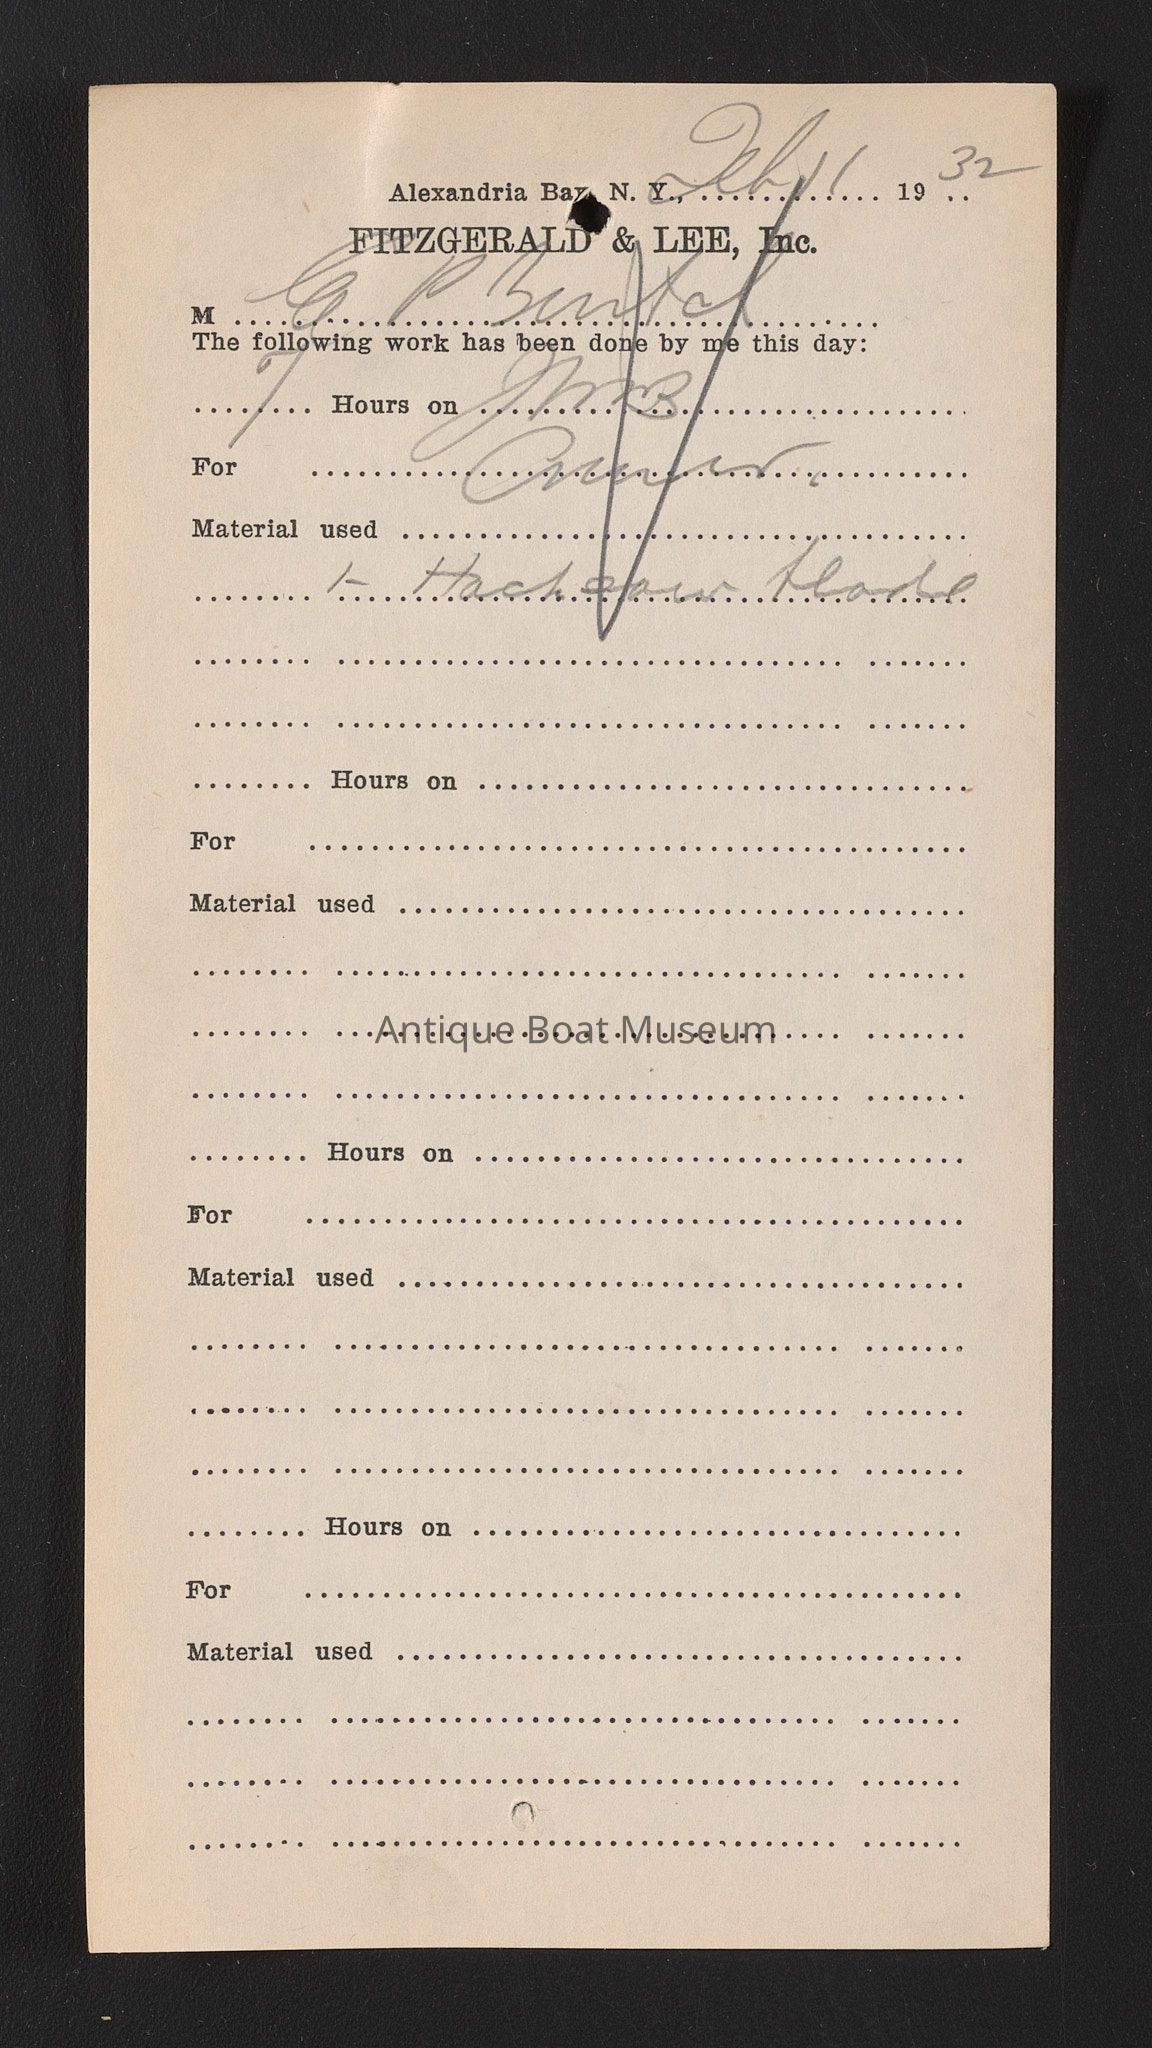 Alexandria Bay, N. Y., Feb 11 19 32
FITZGERALD & LEE, Inc.
M G P
The following work has been done by me this day:
7 Hours on
For
Material used
1- Hacksaw blade
Hours on
For
Material used
Antique Boat Museum
Hours on
For
Material used
Hours on
For
Material used